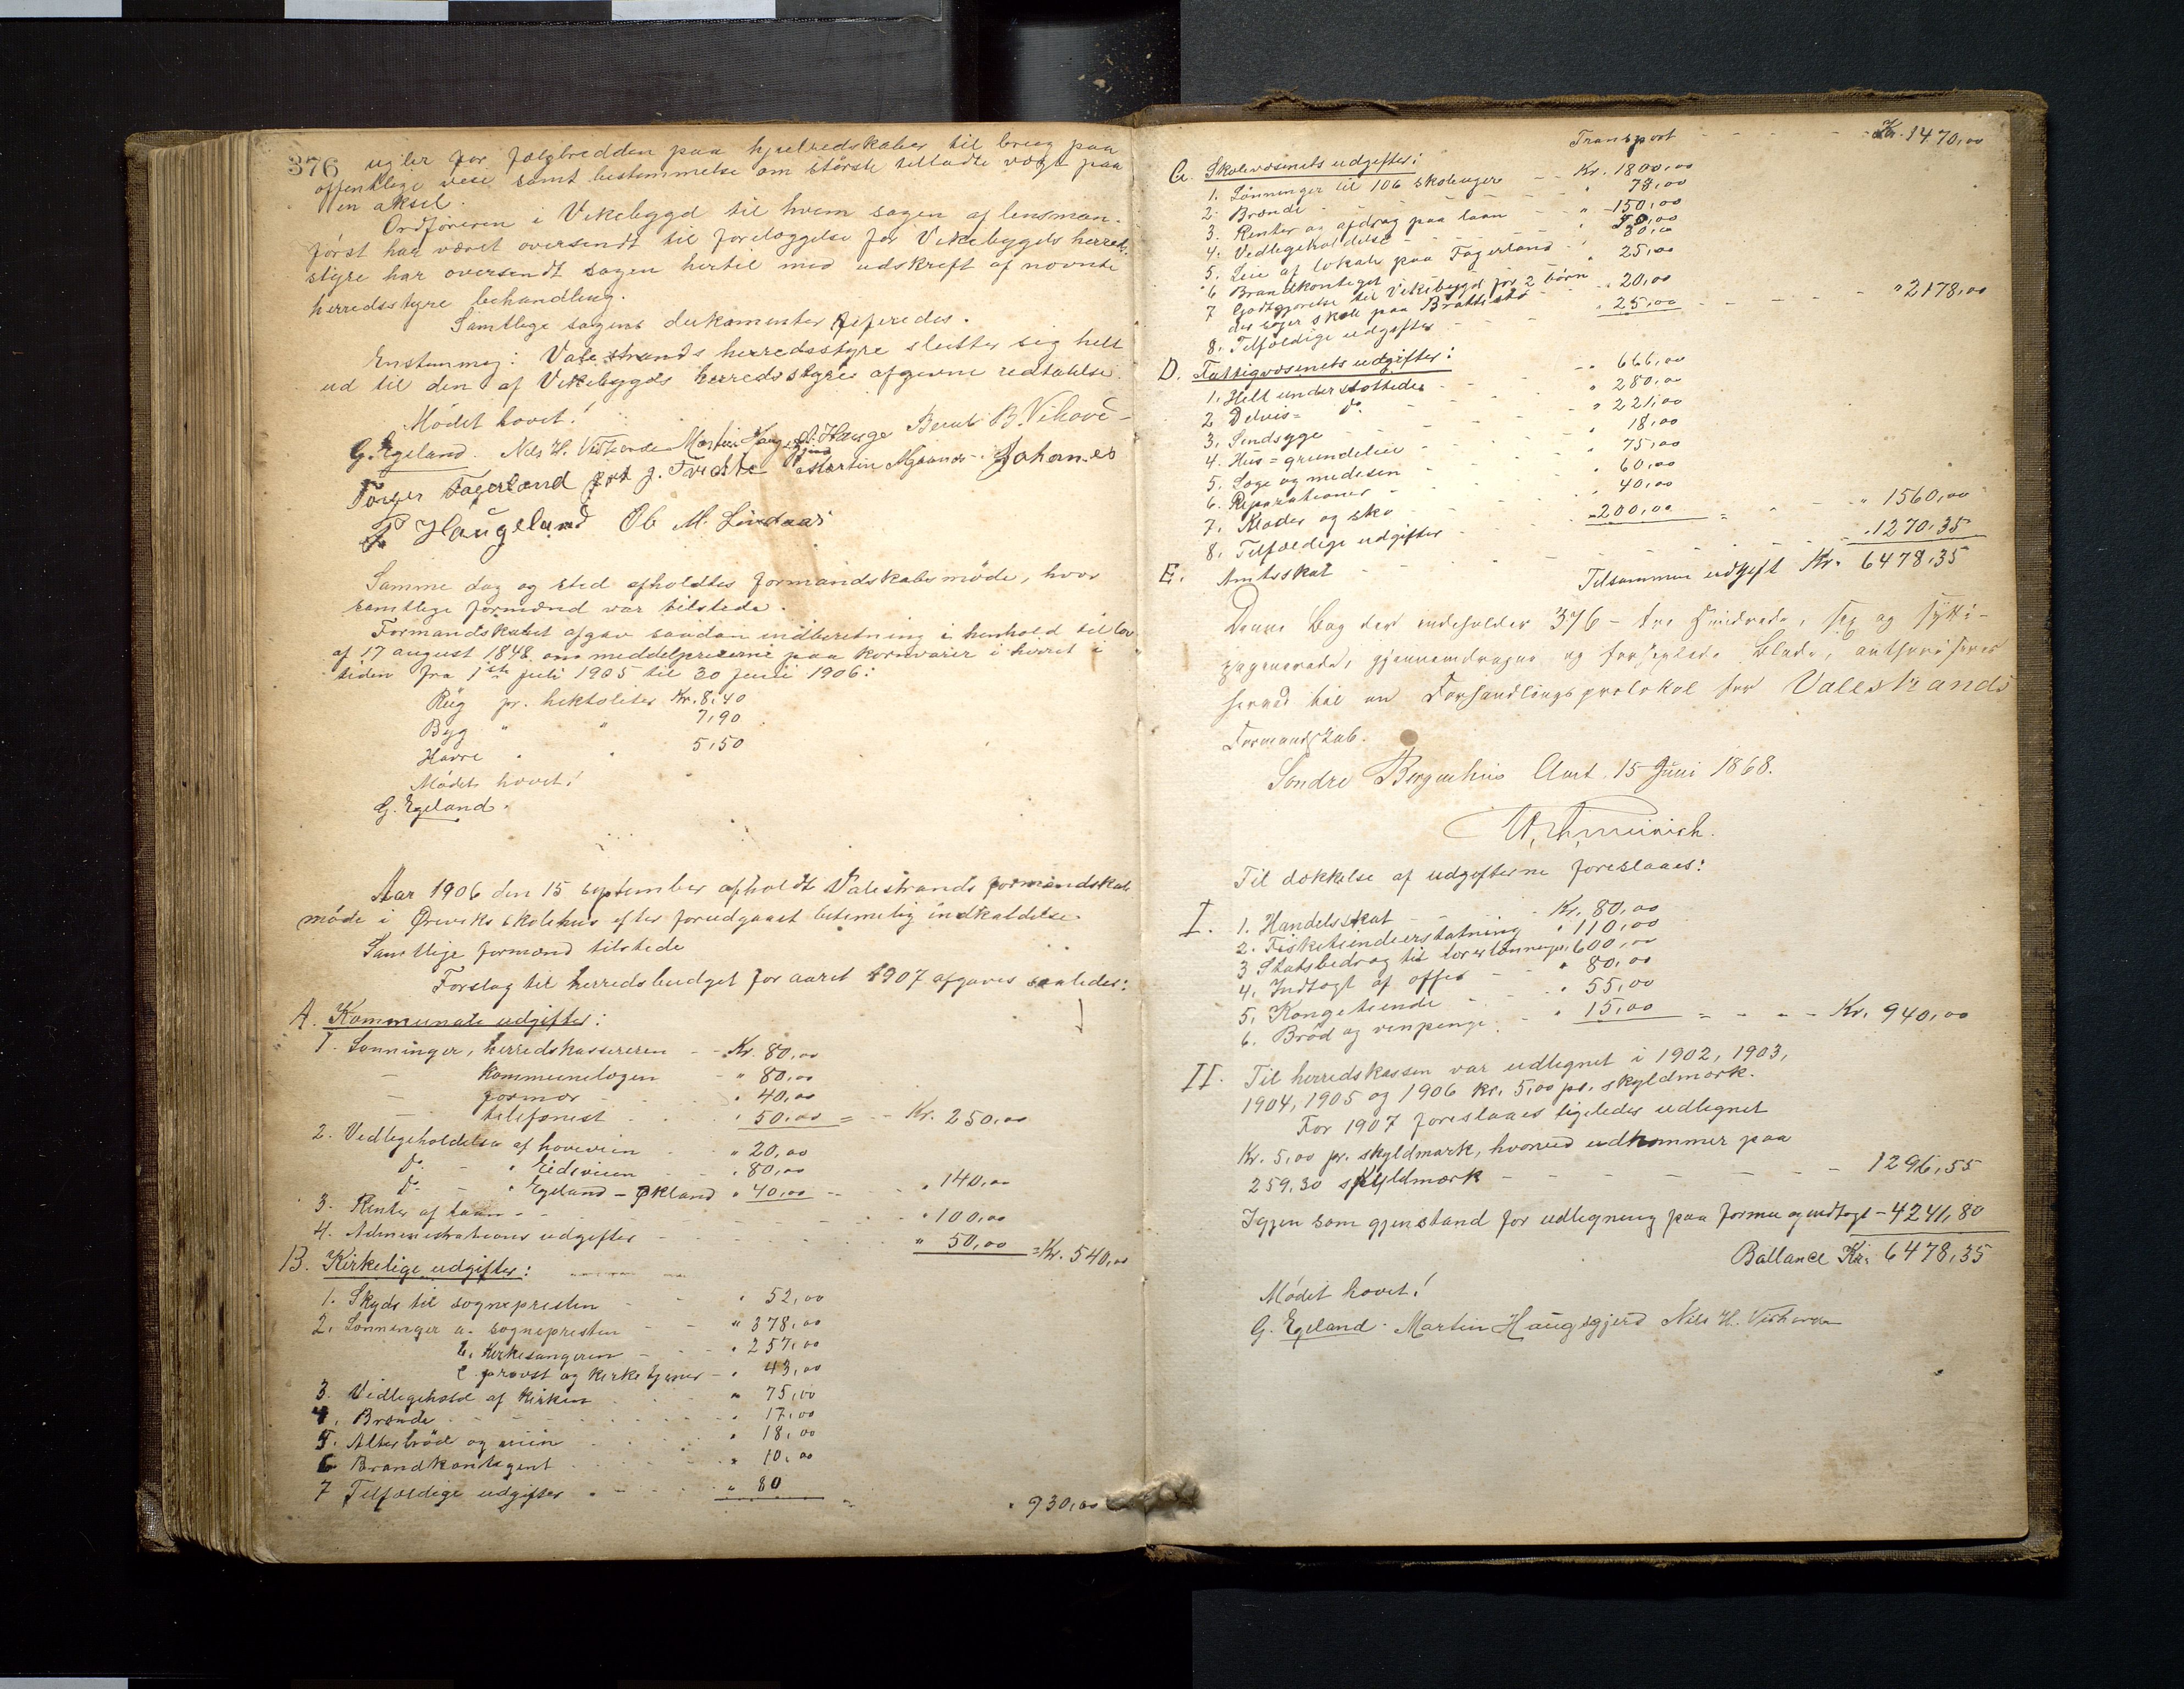 376 regler for fælgbredden paa hjulredskaber til brug paa
offentlige veie samt bestemmelse om störste tilladte vægt paa
en aksel.
Ordføreren i Vikebygd til hvem sagen af lensman-
först har været oversendt til foreleggelse for Vikebygds herreds-
styre har oversendt sagen hertil med udskrift af nævnte
herredsstyre behandling.
Samtlige sagens dokumenter refereredes.
Enstemmig: Valestrands herredsstyre slutter sig helt
ud til den af Vikebygds herredsstyre afgivne udtalelse.
Mödet hævet!
G. Egeland. Nels H. Martin Haugsgjerd Hauge Berul B. Vihove-
Torger Fagerland Martin Johannes
P Haugeland Ob M. Lindaas
Samme dag og sted afholdtes formandskabsmöde, hvor
samtlige formænd var tilstede.
Formandskabet afgav saadan indberetning i henhold til lov
af 17 august 1848 om middelpriserne paa kornvarer i herret i
tiden fra 1ste juli 1905 til 30 juni 1906:
Rug pr. hektoliter Kr. 8,40
Byg " " 7,90
Havre " " 5,50
Mödet hævet!
G. Egeland.
Aar 1906 den 15 september afholdt Valestrands formandskab
möde i Øreviks skolehus efter forudgaaet betimelig indkaldelse.
Samtlige formænd tilstede
Forslag til herredsbudget for aaret 1907 afgaves saaledes:
A. Kommunale udgifter:
1. Lønninger, herredskassereren - - Kr. 80,00
— kommunelægen - " 80,00
— jormor - - " 40,00
— telefonist " 50,00 = - Kr. 250,00
2. Vedligeholdelse af hoveveien " 20,00
Do. - " Eidsveien - " 80,00
Do. - " Egeland - Økland " 40,00 - - " 140,00
3. Renter af laan - - " 100,00
4. Administrations udgifter - - " 50,00 = Kr. 540,00
B. Kirkelige udgifter:
1. Skyds til sognepresten - - " 52,00
2. Lønninger a. sognepresten - - " 378,00
b. Kirkesangeren - - " 257,00
c provst og kirketjener - " 43,00
3. Vedligehold af kirken " 75,00
4. Brænde - - " 17,00
5. Alterbröd og viin " 18,00
6 Brandkontigent " 10,00
7 Tilfældige udgifter - - " 80
" 930,00
Transport - - - Kr. 1470,00
C. Skolevæsenets udgifter:
1. Lönninger til 106 skoleuger - - Kr. 1800,00
2. Brænde - " 78,00
3. Renter og afdrag paa laan - - " 150,00
4. Vedligeholdelse - - " 50,00
5. Leie af lokale paa Fagerland - " 30,00
6 Brandkontigent " 25,00
7 Godtgjørelse til Vikebygd for 2 børn
der søger skole paa Brattestø " 20,00
8. Tilfældige udgifter - " 25,00 - - - " 2178,00
D. Fattigvæsenets udgifter:
1. Helt understøttede - - " 666,00
2 Delvis = Do. - - " 280,00
3. Sindsyge - - " 221,00
4. Hus = grundeleie - - " 18,00
5. Læge og medisin - - " 75,00
6. Reparationer - - " 60,00
7. Klæder og sko - - " 40,00
8. Tilfældige udgifter - " 200,00 = " 1560,00
E. Amtsskat - - - " 1270,35
Tilsammen udgift Kr. 6478,35
Denne Bog der indeholder 376 - tre Hundrede, sex og sytti-
paginerede, gjennemdragne og forseglede Blade, authoriseres
herved til en Forhandlingsprotokol for Valestrands
Formandskab.
Søndre Bergenhus Amt. 15 Juni 1868.
Til dækkelse af udgifterne foreslaaes:
I. 1. Handelsskat - - - Kr. 80,00
2. Fisketiendeerstatning " 110,00
3 Statsbedrag til lærerlønninger " 600,00
4. Indtægt af offer - - " 80,00
5. Kongetiende - - " 55,00
6. Bröd og vinpenge - - " 15,00 = - - - Kr. 940,00
II. Til herredskassen var udlignet i 1902, 1903,
1904, 1905 og 1906 kr. 5,00 pr. skyldmark.
For 1907 foreslaaes ligeledes udlignet
Kr. 5,00 pr. skyldmark, hvorved udkommer paa
259,30 skyldmark - - - 1296,55
Igjen som gjenstand for udligning paa formue og indtægt - 4241,80
Ballance Kr. 6478,35
Mödet hævet!
G. Egeland. Martin Haugsgjerd Nils H.